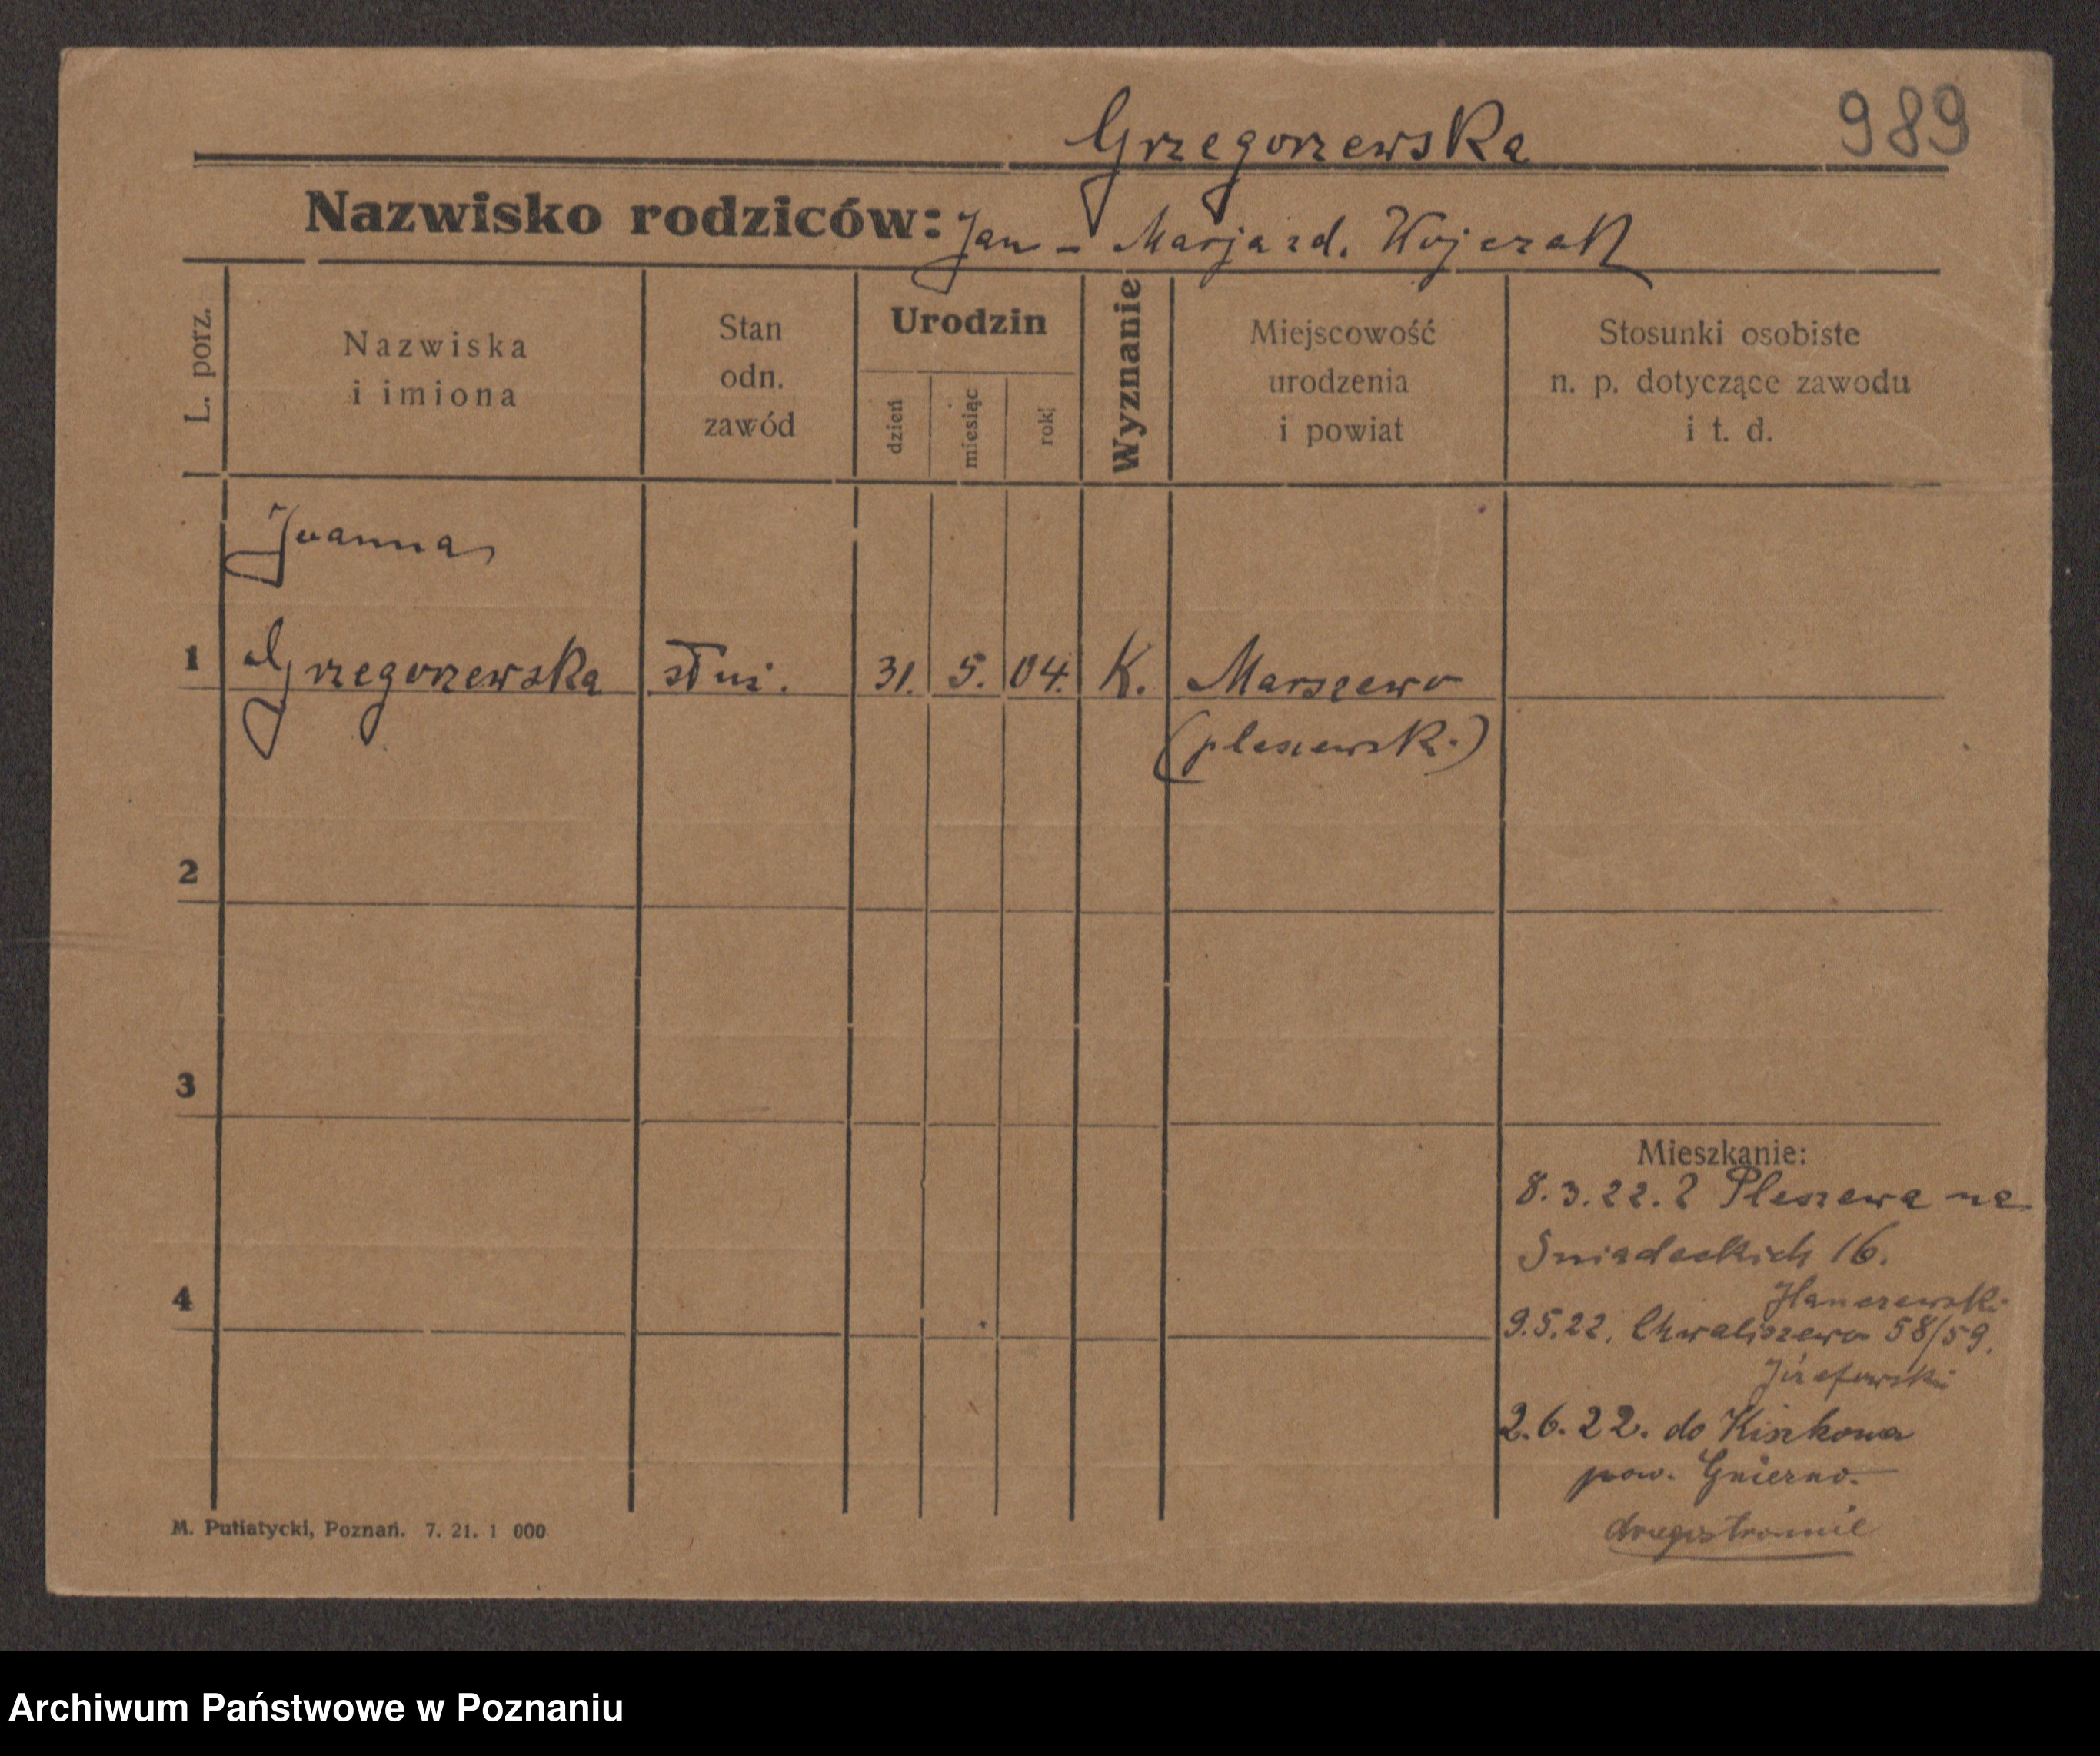 Grzegorzewska
989
Nazwisko rodziców: Jan - Marja zd. Wojczak
L. porz.
Nazwiska
i imiona
Stan
odn.
zawód
Urodzin
dzień
miesiąc
rok
Wyznanie
Miejscowość
urodzenia
i powiat
Stosunki osobiste
n. p. dotyczące zawodu
i t. d.
Joanna
1 Grzegorzewska służ. 31. 5. 04. K. Marszewo
(pleszewsk.)
2
3
4
Mieszkanie:
8.3.22. z Pleszewa na
Śniadeckich 16.
9.5.22. Chwaliszewo 58/59.
Józefowski
2.6.22. do Kiszkowa
pow. Gniezno.
M. Putiatycki, Poznań. 7. 21. 1 000
Archiwum Państwowe w Poznaniu